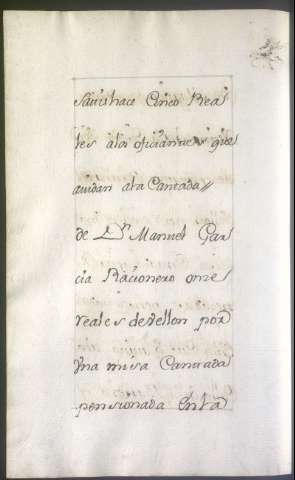 satishace Cinco Rea
les alos oficiantes que
aiudan ala Cantada//
de Dn Manuel Gar
cia Racionero onze
reales de vellon por
Una misa Cantada
pensionada en la